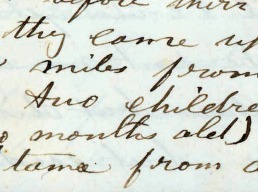 before their
they came up
miles from
two childre
months old)
tama from a